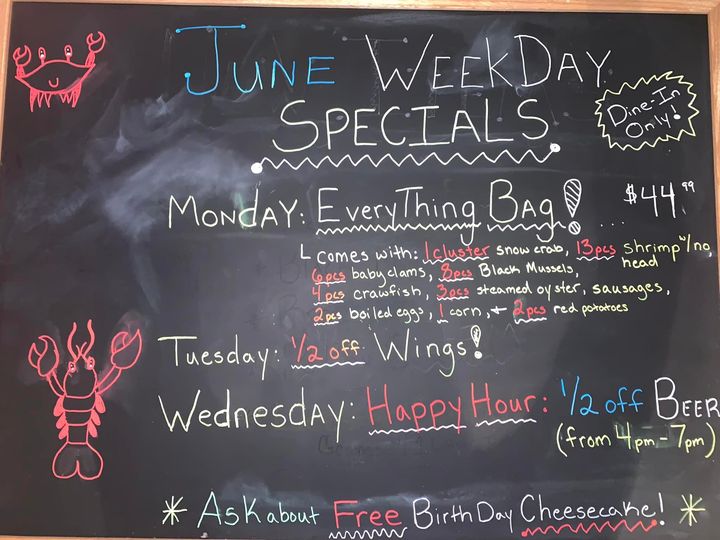 June WeekDay
Specials
Dine-In
Only!
Monday: EveryThing Bag! ... $44.99
comes with: 1 cluster snow crab, 13pcs shrimp w/no head
6pcs baby clams, 8pcs Black Mussels,
4pcs crawfish, 3pcs steamed oyster, sausages,
2pcs boiled eggs, 1 corn, + 2pcs red potatoes
Tuesday: 1/2 off Wings!
Wednesday: Happy Hour: 1/2 off Beer
(from 4pm-7pm)
* Ask about Free BirthDay Cheesecake! *